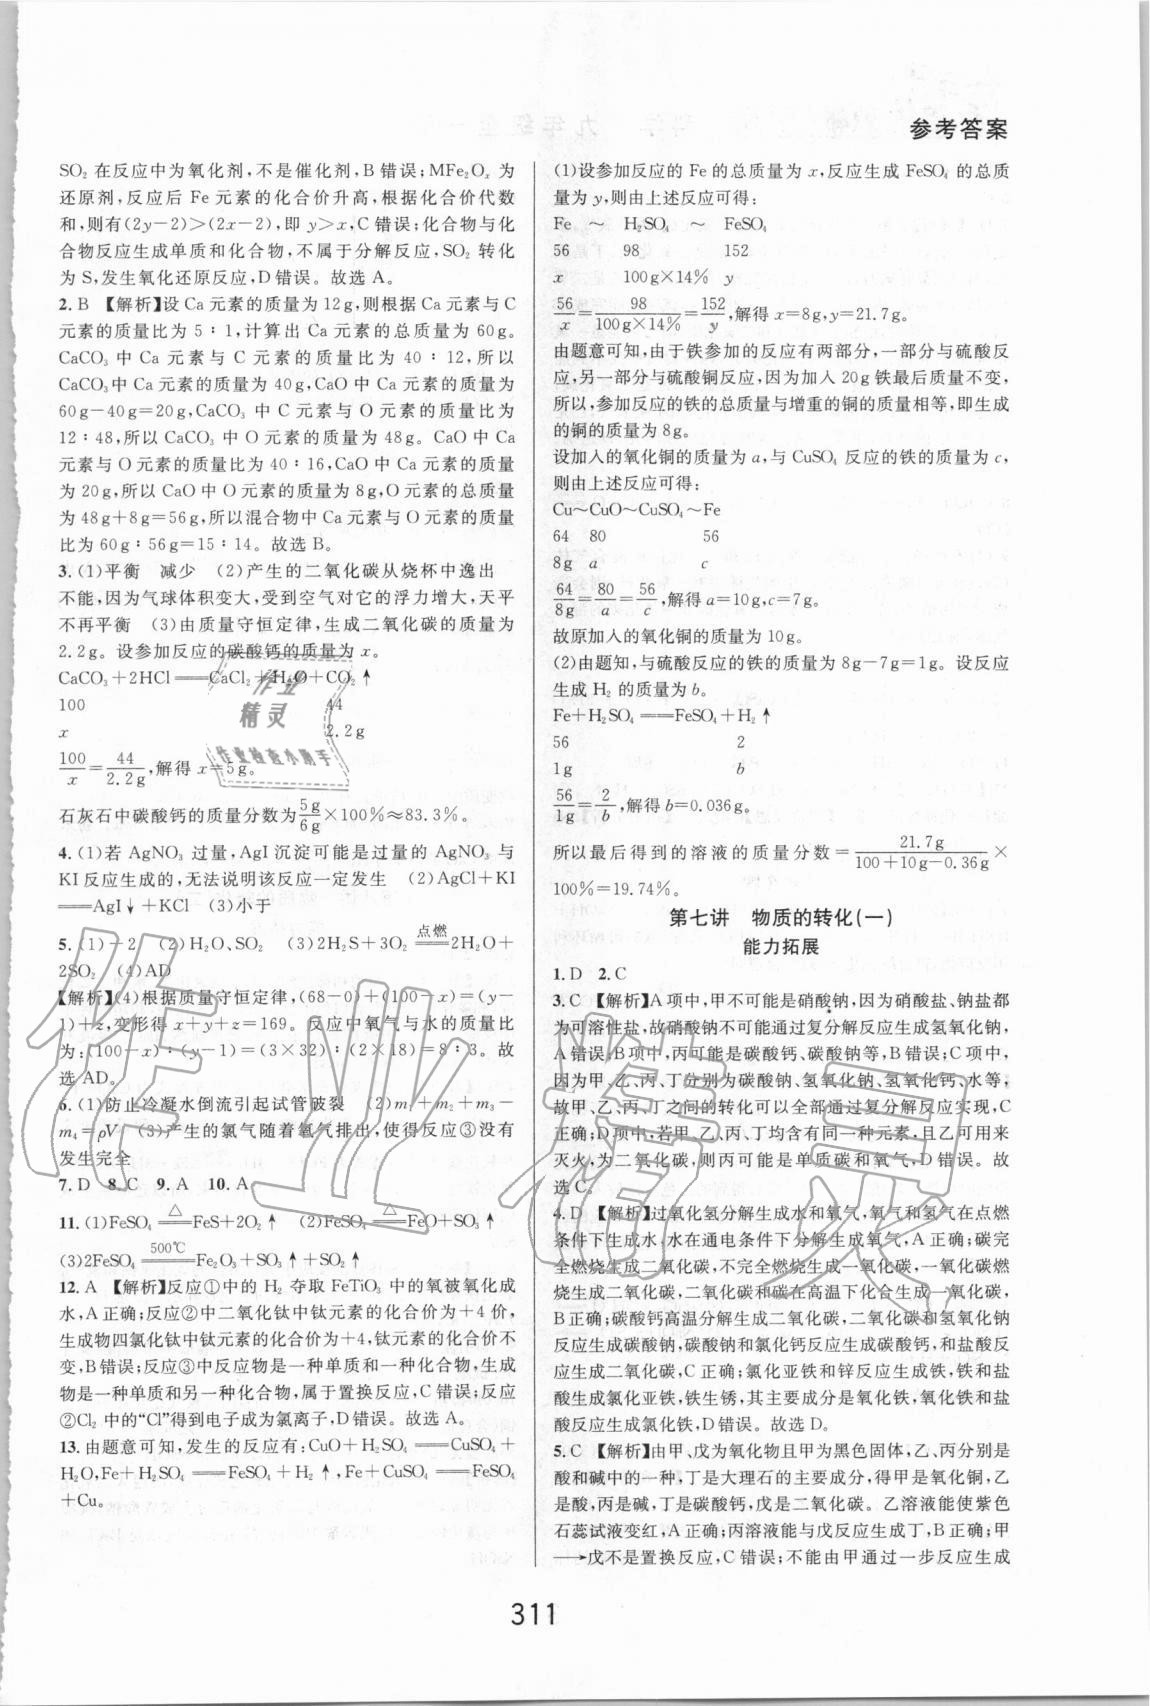 参考答案
SO₂在反应中为氧化剂,不是催化剂,B错误;MFe₂Oₓ为
还原剂,反应后Fe元素的化合价升高,根据化合价代数
和,则有(2y-2)>(2x-2),即y>x,C错误;化合物与化
合物反应生成单质和化合物,不属于分解反应,SO₂转化
为S,发生氧化还原反应,D错误。故选A。
2. B 【解析】设Ca元素的质量为12g,则根据Ca元素与C
元素的质量比为5∶1,计算出Ca元素的总质量为60g。
CaCO₃中Ca元素与C元素的质量比为40∶12,所以
CaCO₃中Ca元素的质量为40g,CaO中Ca元素的质量为
60g-40g=20g,CaCO₃中C元素与O元素的质量比为
12∶48,所以CaCO₃中O元素的质量为48g。CaO中Ca
元素与O元素的质量比为40∶16,CaO中Ca元素的质量
为20g,所以CaO中O元素的质量为8g,O元素的总质量
为48g+8g=56g,所以混合物中Ca元素与O元素的质量
比为60g∶56g=15∶14。故选B。
3. (1)平衡 减少 (2)产生的二氧化碳从烧杯中逸出
不能,因为气球体积变大,受到空气对它的浮力增大,天平
不再平衡 (3)由质量守恒定律,生成二氧化碳的质量为
2.2g。设参加反应的碳酸钙的质量为x。
CaCO₃+2HCl══CaCl₂+H₂O+CO₂↑
100 44
x 2.2g
100/x=44/2.2g,解得x=5g。
石灰石中碳酸钙的质量分数为5g/6g×100%≈83.3%。
4. (1)若AgNO₃过量,AgI沉淀可能是过量的AgNO₃与
KI反应生成的,无法说明该反应一定发生 (2)AgCl+KI
══AgI↓+KCl (3)小于
5. (1)-2 (2)H₂O、SO₂ (3)2H₂S+3O₂ ══点燃 2H₂O+
2SO₂ (4)AD
【解析】(4)根据质量守恒定律,(68-0)+(100-x)=(y-
1)+z,变形得x+y+z=169。反应中氧气与水的质量比
为:(100-x)∶(y-1)=(3×32)∶(2×18)=8∶3。故
选AD。
6. (1)防止冷凝水倒流引起试管破裂 (2)m₁+m₂+m₃-
m₄=ρV (3)产生的氯气随着氧气排出,使得反应③没有
发生完全
7. D 8. C 9. A 10. A
11. (1)FeSO₄ ══△ FeS+2O₂↑ (2)FeSO₄ ══△ FeO+SO₃↑
(3)2FeSO₄ ══500℃ Fe₂O₃+SO₃↑+SO₂↑
12. A 【解析】反应①中的H₂夺取FeTiO₃中的氧被氧化成
水,A正确;反应②中二氧化钛中钛元素的化合价为+4价,
生成物四氯化钛中钛元素的化合价为+4,钛元素的化合价不
变,B错误;反应③中反应物是一种单质和一种化合物,生成
物是一种单质和另一种化合物,属于置换反应,C错误;反应
②Cl₂中的“Cl”得到电子成为氯离子,D错误。故选A。
13. 由题意可知,发生的反应有:CuO+H₂SO₄══CuSO₄+
H₂O,Fe+H₂SO₄══FeSO₄+H₂↑,Fe+CuSO₄══FeSO₄
+Cu。
(1)设参加反应的Fe的总质量为x,反应生成FeSO₄的总质
量为y,则由上述反应可得:
Fe ~ H₂SO₄ ~ FeSO₄
56 98 152
x 100g×14% y
56/x=98/100g×14%=152/y,解得x=8g,y=21.7g。
由题意可知,由于铁参加的反应有两部分,一部分与硫酸反
应,另一部分与硫酸铜反应,因为加入20g铁最后质量不变,
所以,参加反应的铁的总质量与增重的铜的质量相等,即生成
的铜的质量为8g。
设加入的氧化铜的质量为a,与CuSO₄反应的铁的质量为c,
则由上述反应可得:
Cu~CuO~CuSO₄~Fe
64 80 56
8g a c
64/8g=80/a=56/c,解得a=10g,c=7g。
故原加入的氧化铜的质量为10g。
(2)由题知,与硫酸反应的铁的质量为8g-7g=1g。设反应
生成H₂的质量为b。
Fe+H₂SO₄══FeSO₄+H₂↑
56 2
1g b
56/1g=2/b,解得b=0.036g。
所以最后得到的溶液的质量分数=21.7g/100+10g-0.36g×
100%=19.74%。
第七讲 物质的转化(一)
能力拓展
1. D 2. C
3. C 【解析】A项中,甲不可能是硝酸钠,因为硝酸盐、钠盐都
为可溶性盐,故硝酸钠不可能通过复分解反应生成氢氧化钠,
A错误;B项中,丙可能是碳酸钙、碳酸钠等,B错误;C项中,
因为甲、乙、丙、丁分别为碳酸钠、氢氧化钠、氢氧化钙、水等,
故甲、乙、丙、丁之间的转化可以全部通过复分解反应实现,C
正确;D项中,若甲、乙、丙、丁均含有同一种元素,且乙可用来
灭火,为二氧化碳,则丙可能是单质碳和氧气,D错误。故
选C。
4. D 【解析】过氧化氢分解生成水和氧气,氧气和氢气在点燃
条件下生成水,水在通电条件下分解生成氧气,A正确;碳完
全燃烧生成二氧化碳,不完全燃烧生成一氧化碳,一氧化碳燃
烧生成二氧化碳,二氧化碳和碳在高温下化合生成一氧化碳,
B正确;碳酸钙高温分解生成二氧化碳,二氧化碳和氢氧化钠
反应生成碳酸钠,碳酸钠和氯化钙反应生成碳酸钙,和盐酸
反应生成二氧化碳,C正确;氯化亚铁和锌反应生成铁,铁和盐
酸生成氯化亚铁,铁生锈,其主要成分是氧化铁,氧化铁和盐
酸反应生成氯化铁,D错误。故选D。
5. C 【解析】由甲、戊为氧化物且甲为黑色固体,乙、丙分别是
酸和碱中的一种,丁是大理石的主要成分,得甲是氧化铜,乙
是酸,丙是碱,丁是碳酸钙,戊是二氧化碳。乙溶液能使紫色
石蕊试液变红,A正确;丙溶液能与戊反应生成丁,B正确;甲
→戊不是置换反应,C错误;不能由甲通过一步反应生成
311
作业精灵
作业
精灵
作业检查小助手